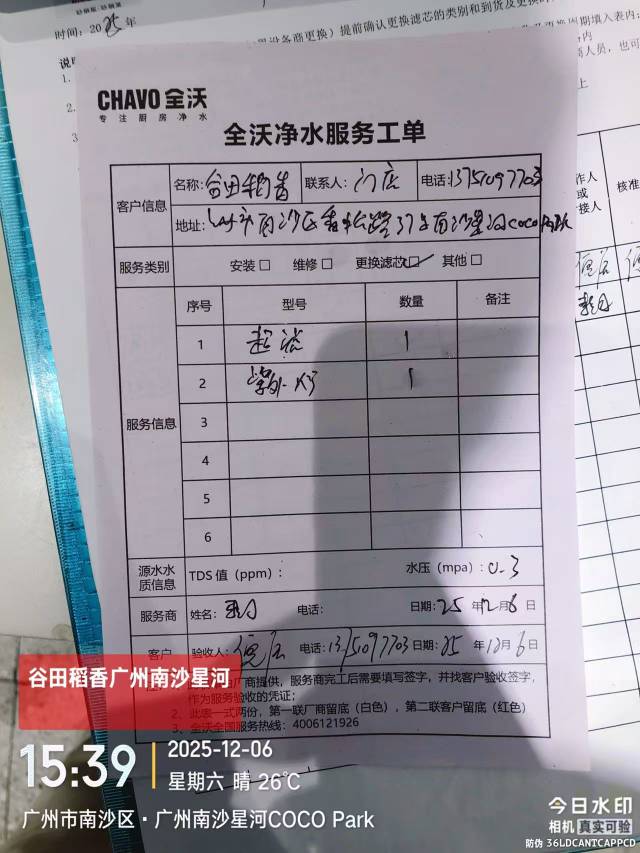 时间：2025年
CHAVO 全沃
专注厨房净水
全沃净水服务工单
客户信息
名称：谷田稻香 联系人：门店 电话：13751097703
地址：广州市南沙区 路37号南沙星河COCO
服务类别 安装□ 维修□ 更换滤芯☑ 其他□
服务信息
序号 型号 数量 备注
1 超滤 1
2 紫外灯 1
3
4
5
6
源水水质信息 TDS 值（ppm）： 水压（mpa）：0.3
服务商 姓名： 电话： 日期：25 年 12 月 6 日
客户 验收人： 电话：13751097703 日期：25 年 12 月 6 日
厂商提供，服务商完工后需要填写签字，并找客户验收签字，
作为服务验收的凭证；
2、此表一式两份，第一联厂商留底（白色），第二联客户留底（红色）
3、全沃全国服务热线：4006121926
谷田稻香广州南沙星河
15:39
2025-12-06
星期六 晴 26℃
广州市南沙区·广州南沙星河COCO Park
今日水印
相机 真实可验
防伪 36LDCANTCAPPCD